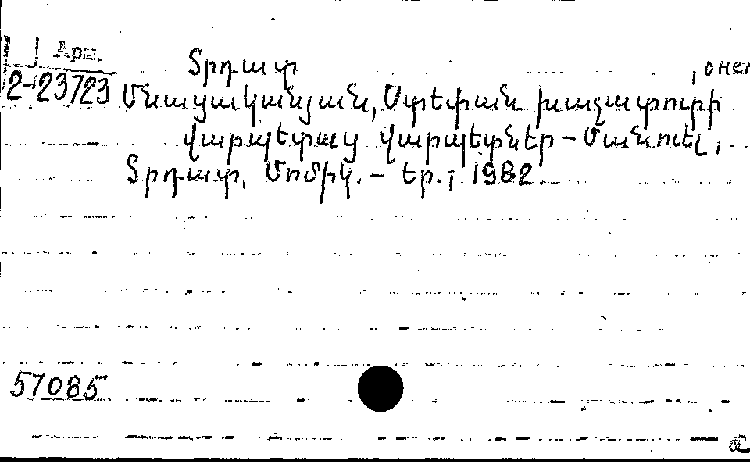 Арм.
Տրդատ , о нем
2-23723 Մնացականյան, Ստեփան Խաչատուրի
Վարպետաց վարպետներ – Մանուել,
Տրդատ, Մոմիկ. – Եր., 1982
57085